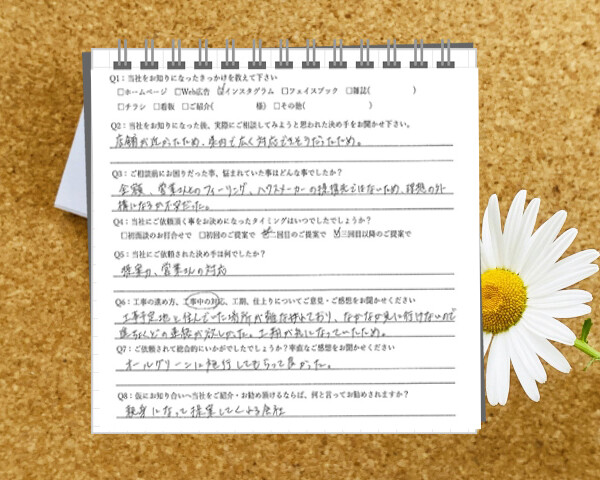 Q1：当社をお知りになったきっかけを教えて下さい
□ホームページ □Web広告 ☑インスタグラム □フェイスブック □雑誌( )
□チラシ □看板 □ご紹介( 様) □その他( )
Q2：当社をお知りになった後、実際にご相談してみようと思われた決め手をお聞かせ下さい。
店舗が近かったため、県内で広く対応できそうだったため。
Q3：ご相談前にお困りだった事、悩まれていた事はどんな事でしたか？
金額、営業さんとのフィーリング、ハウスメーカーの提携先ではないため、理想の外
構になるか不安だった。
Q4：当社にご依頼頂く事をお決めになったタイミングはいつでしたでしょうか？
□初面談のお打合せで □初回のご提案で 二回目のご提案で ☑三回目以降のご提案で
Q5：当社にご依頼された決め手は何でしたか？
提案力、営業さんの対応
Q6：工事の進め方、工事中の対応、工期、仕上りについてご意見・ご感想をお聞かせください
工事予定地と住んでいた場所が離れており、なかなか見に行けないので
の連絡が欲しかった。工期が気になっていたため。
Q7：ご依頼されて総合的にいかがでしたでしょうか？率直なご感想をお聞かせください
オールグリーンに施行してもらって良かった。
Q8：仮にお知り合いへ当社をご紹介・お勧め頂けるならば、何と言ってお勧めされますか？
親身になって提案してくれる会社